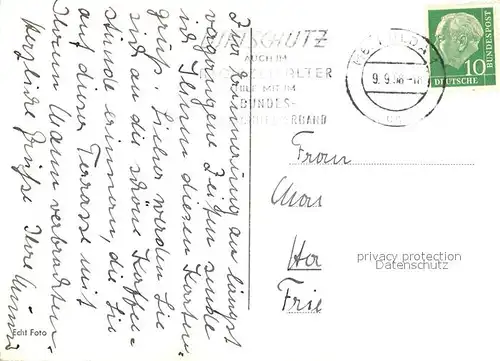 Zur Erinnerung an längst
vergangene Zeiten sende
ich Ihnen diesen Karten-
gruß. Sicher werden Sie
sich an die schöne Kaffee-
stunde erinnern, die Sie
auf dieser Terrasse mit
Ihrem Mann verbrachten.
Herzliche Grüße Ihre
LUFTSCHUTZ
AUCH IM
ALTER
HILF MIT IM
BUNDES-
LUFTSCHUTZVERBAND
FULDA
9.9.58
10
DEUTSCHE
BUNDESPOST
Frau
Mar
Ha
Frie
privacy protection
Datenschutz
Echt Foto